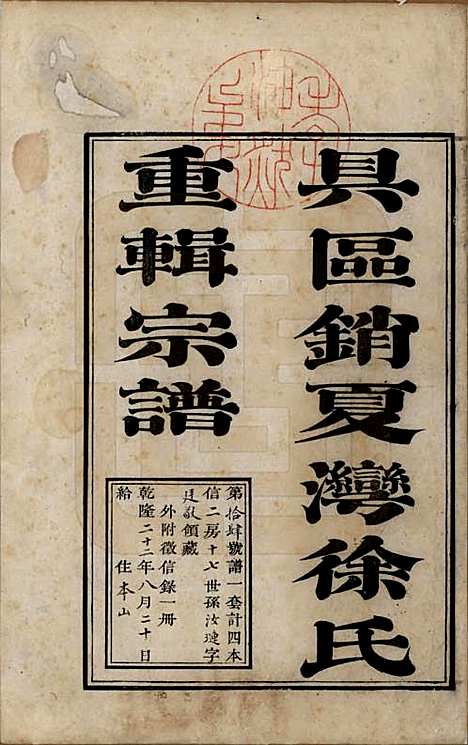 具區銷夏灣徐氏
重輯宗譜
第拾肆號譜一套計四本
信二房十七世孫汝璉字
廷敬領藏
外附徵信錄一册
乾隆二十二年八月二十日
給 住本山